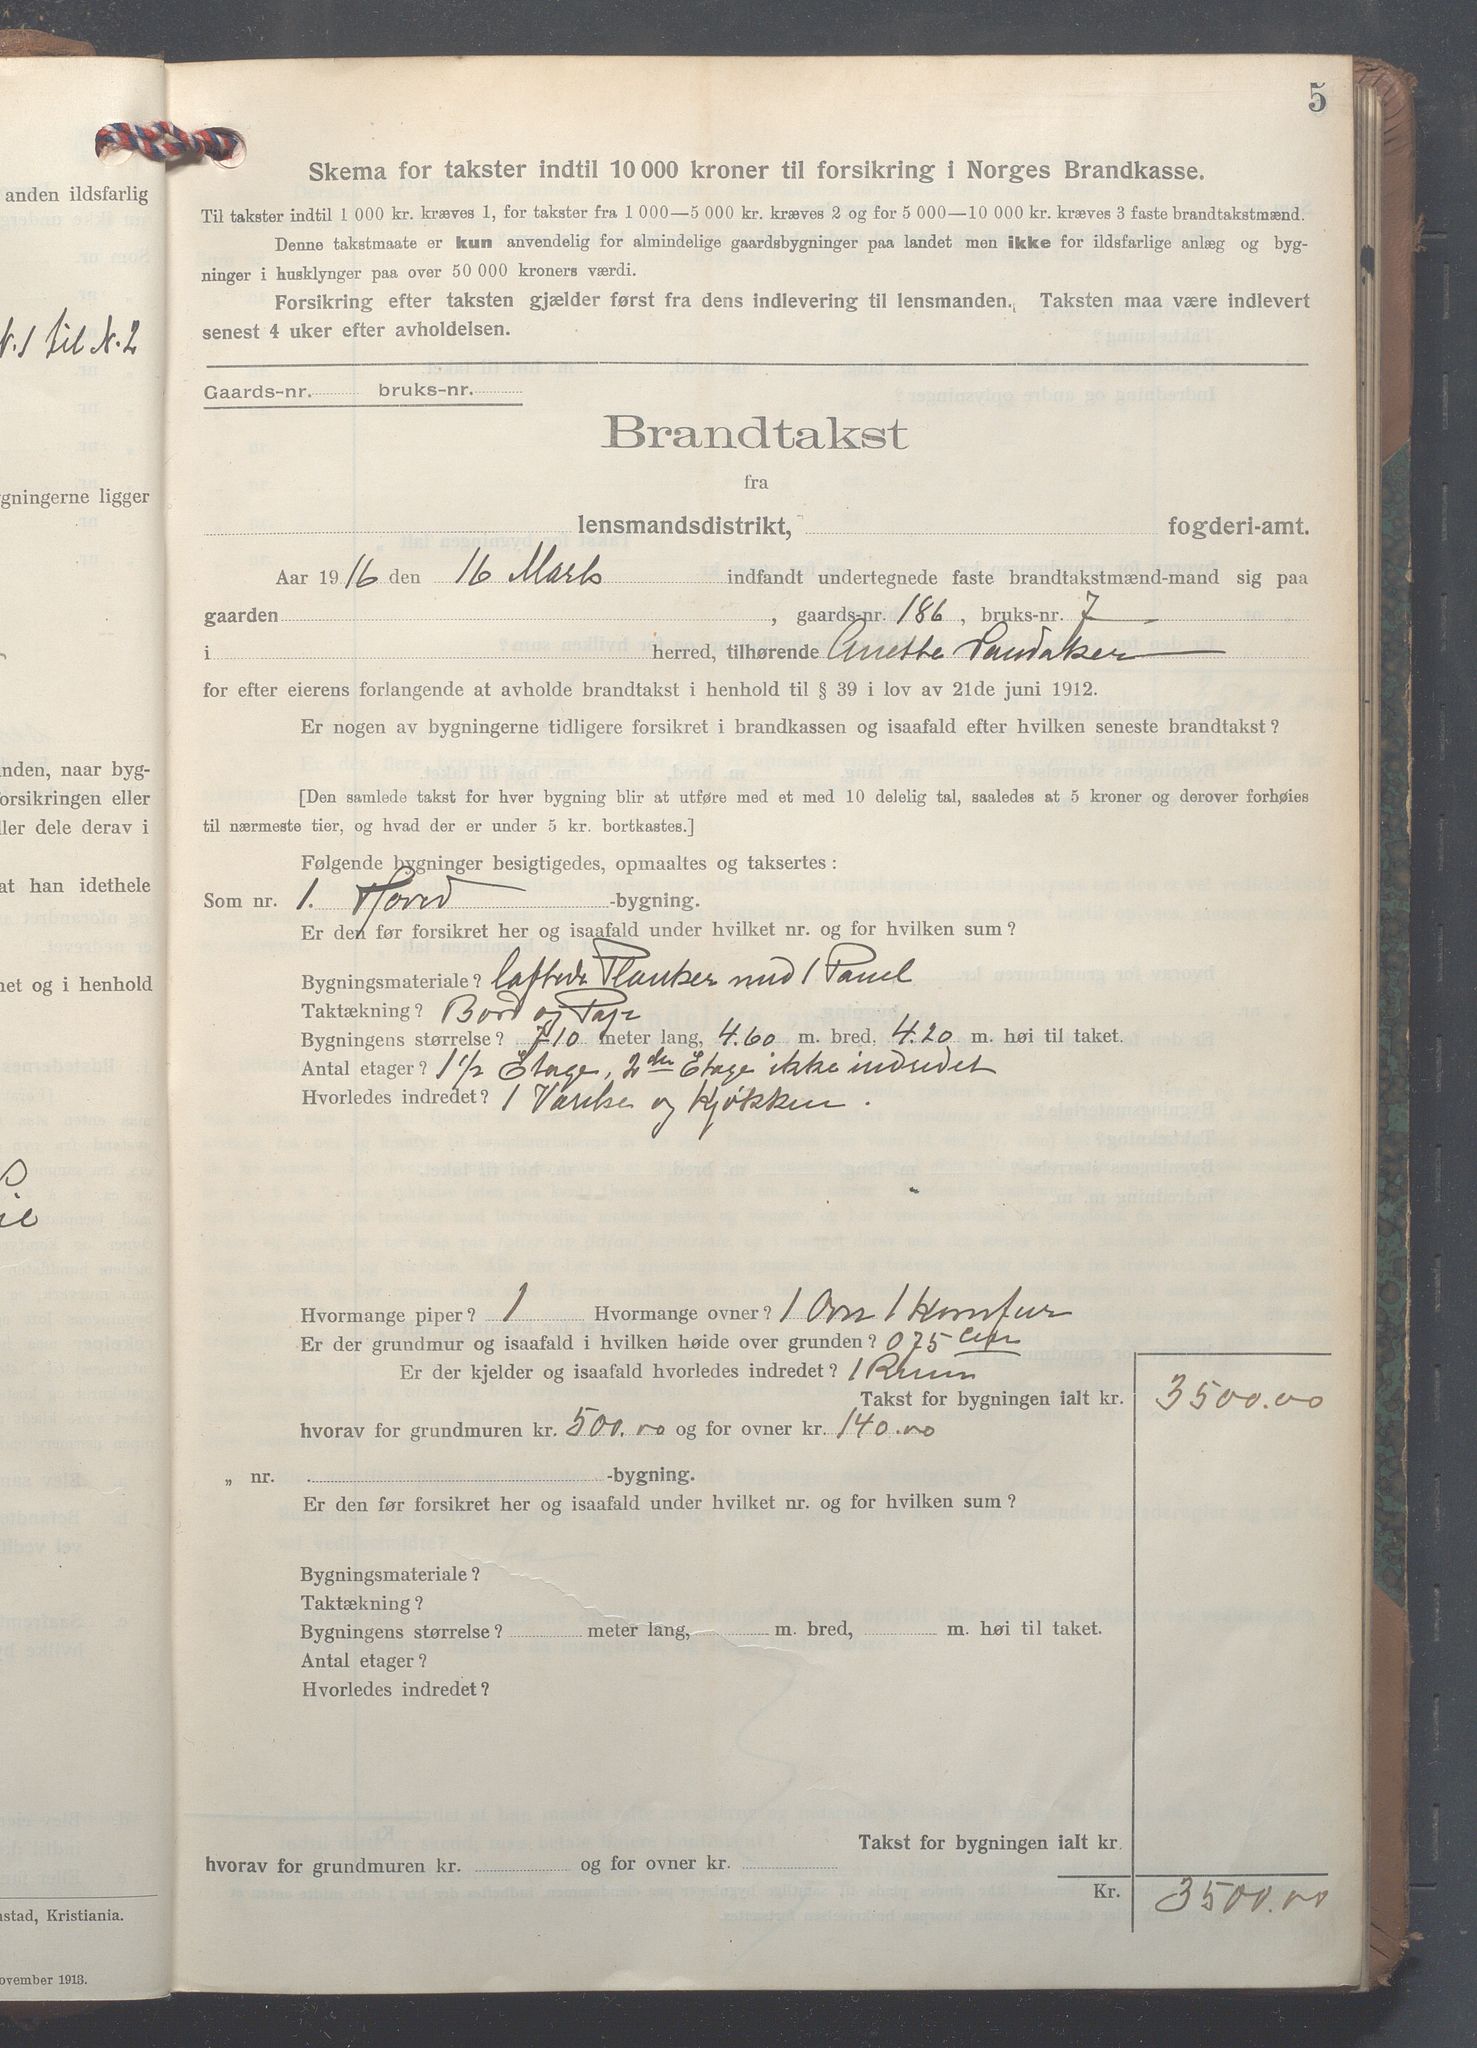 5
anden ildsfarlig
N.1 til N.2
gningerne ligger
nden, naar byg-
orsikringen eller
ller dele derav i
at han idethele
net og i henhold
nstad, Kristiania.
ovember 1913.
Skema for takster indtil 10 000 kroner til forsikring i Norges Brandkasse.
Til takster indtil 1 000 kr. kræves 1, for takster fra 1 000—5 000 kr. kræves 2 og for 5 000—10 000 kr. kræves 3 faste brandtakstmænd.
Denne takstmaate er kun anvendelig for almindelige gaardsbygninger paa landet men ikke for ildsfarlige anlæg og byg-
ninger i husklynger paa over 50 000 kroners værdi.
Forsikring efter taksten gjælder først fra dens indlevering til lensmanden. Taksten maa være indlevert
senest 4 uker efter avholdelsen.
Gaards-nr. bruks-nr.
Brandtakst
fra
lensmandsdistrikt, fogderi-amt.
Aar 1916 den 16 Marts indfandt undertegnede faste brandtakstmænd-mand sig paa
gaarden , gaards-nr. 186, bruks-nr. 7
i herred, tilhørende Anette Sandaker
for efter eierens forlangende at avholde brandtakst i henhold til § 39 i lov av 21de juni 1912.
Er nogen av bygningerne tidligere forsikret i brandkassen og isaafald efter hvilken seneste brandtakst?
[Den samlede takst for hver bygning blir at utføre med et med 10 delelig tal, saaledes at 5 kroner og derover forhøies
til nærmeste tier, og hvad der er under 5 kr. bortkastes.]
Følgende bygninger besigtigedes, opmaaltes og taksertes:
Som nr. 1. Hoved -bygning.
Er den før forsikret her og isaafald under hvilket nr. og for hvilken sum?
Bygningsmateriale? laftede Planker med 1 Panel
Taktækning? Bord og Pap
Bygningens størrelse? 7.10 meter lang, 4.60 m. bred, 4.20 m. høi til taket.
Antal etager? 1 1/2 Etage, 2den Etage ikke indredet
Hvorledes indredet? 1 Værelse og Kjøkken.
Hvormange piper? 1 Hvormange ovner? 1 Ovn 1 Komfur
Er der grundmur og isaafald i hvilken høide over grunden? 075 Ctm
Er der kjelder og isaafald hvorledes indredet? 1 Rum
Takst for bygningen ialt kr. 3500.00
hvorav for grundmuren kr. 500.00 og for ovner kr. 140.00
„ nr. -bygning.
Er den før forsikret her og isaafald under hvilket nr. og for hvilken sum?
Bygningsmateriale?
Taktækning?
Bygningens størrelse? meter lang, m. bred, m. høi til taket.
Antal etager?
Hvorledes indredet?
Takst for bygningen ialt kr.
hvorav for grundmuren kr. og for ovner kr.
Kr. 3500.00